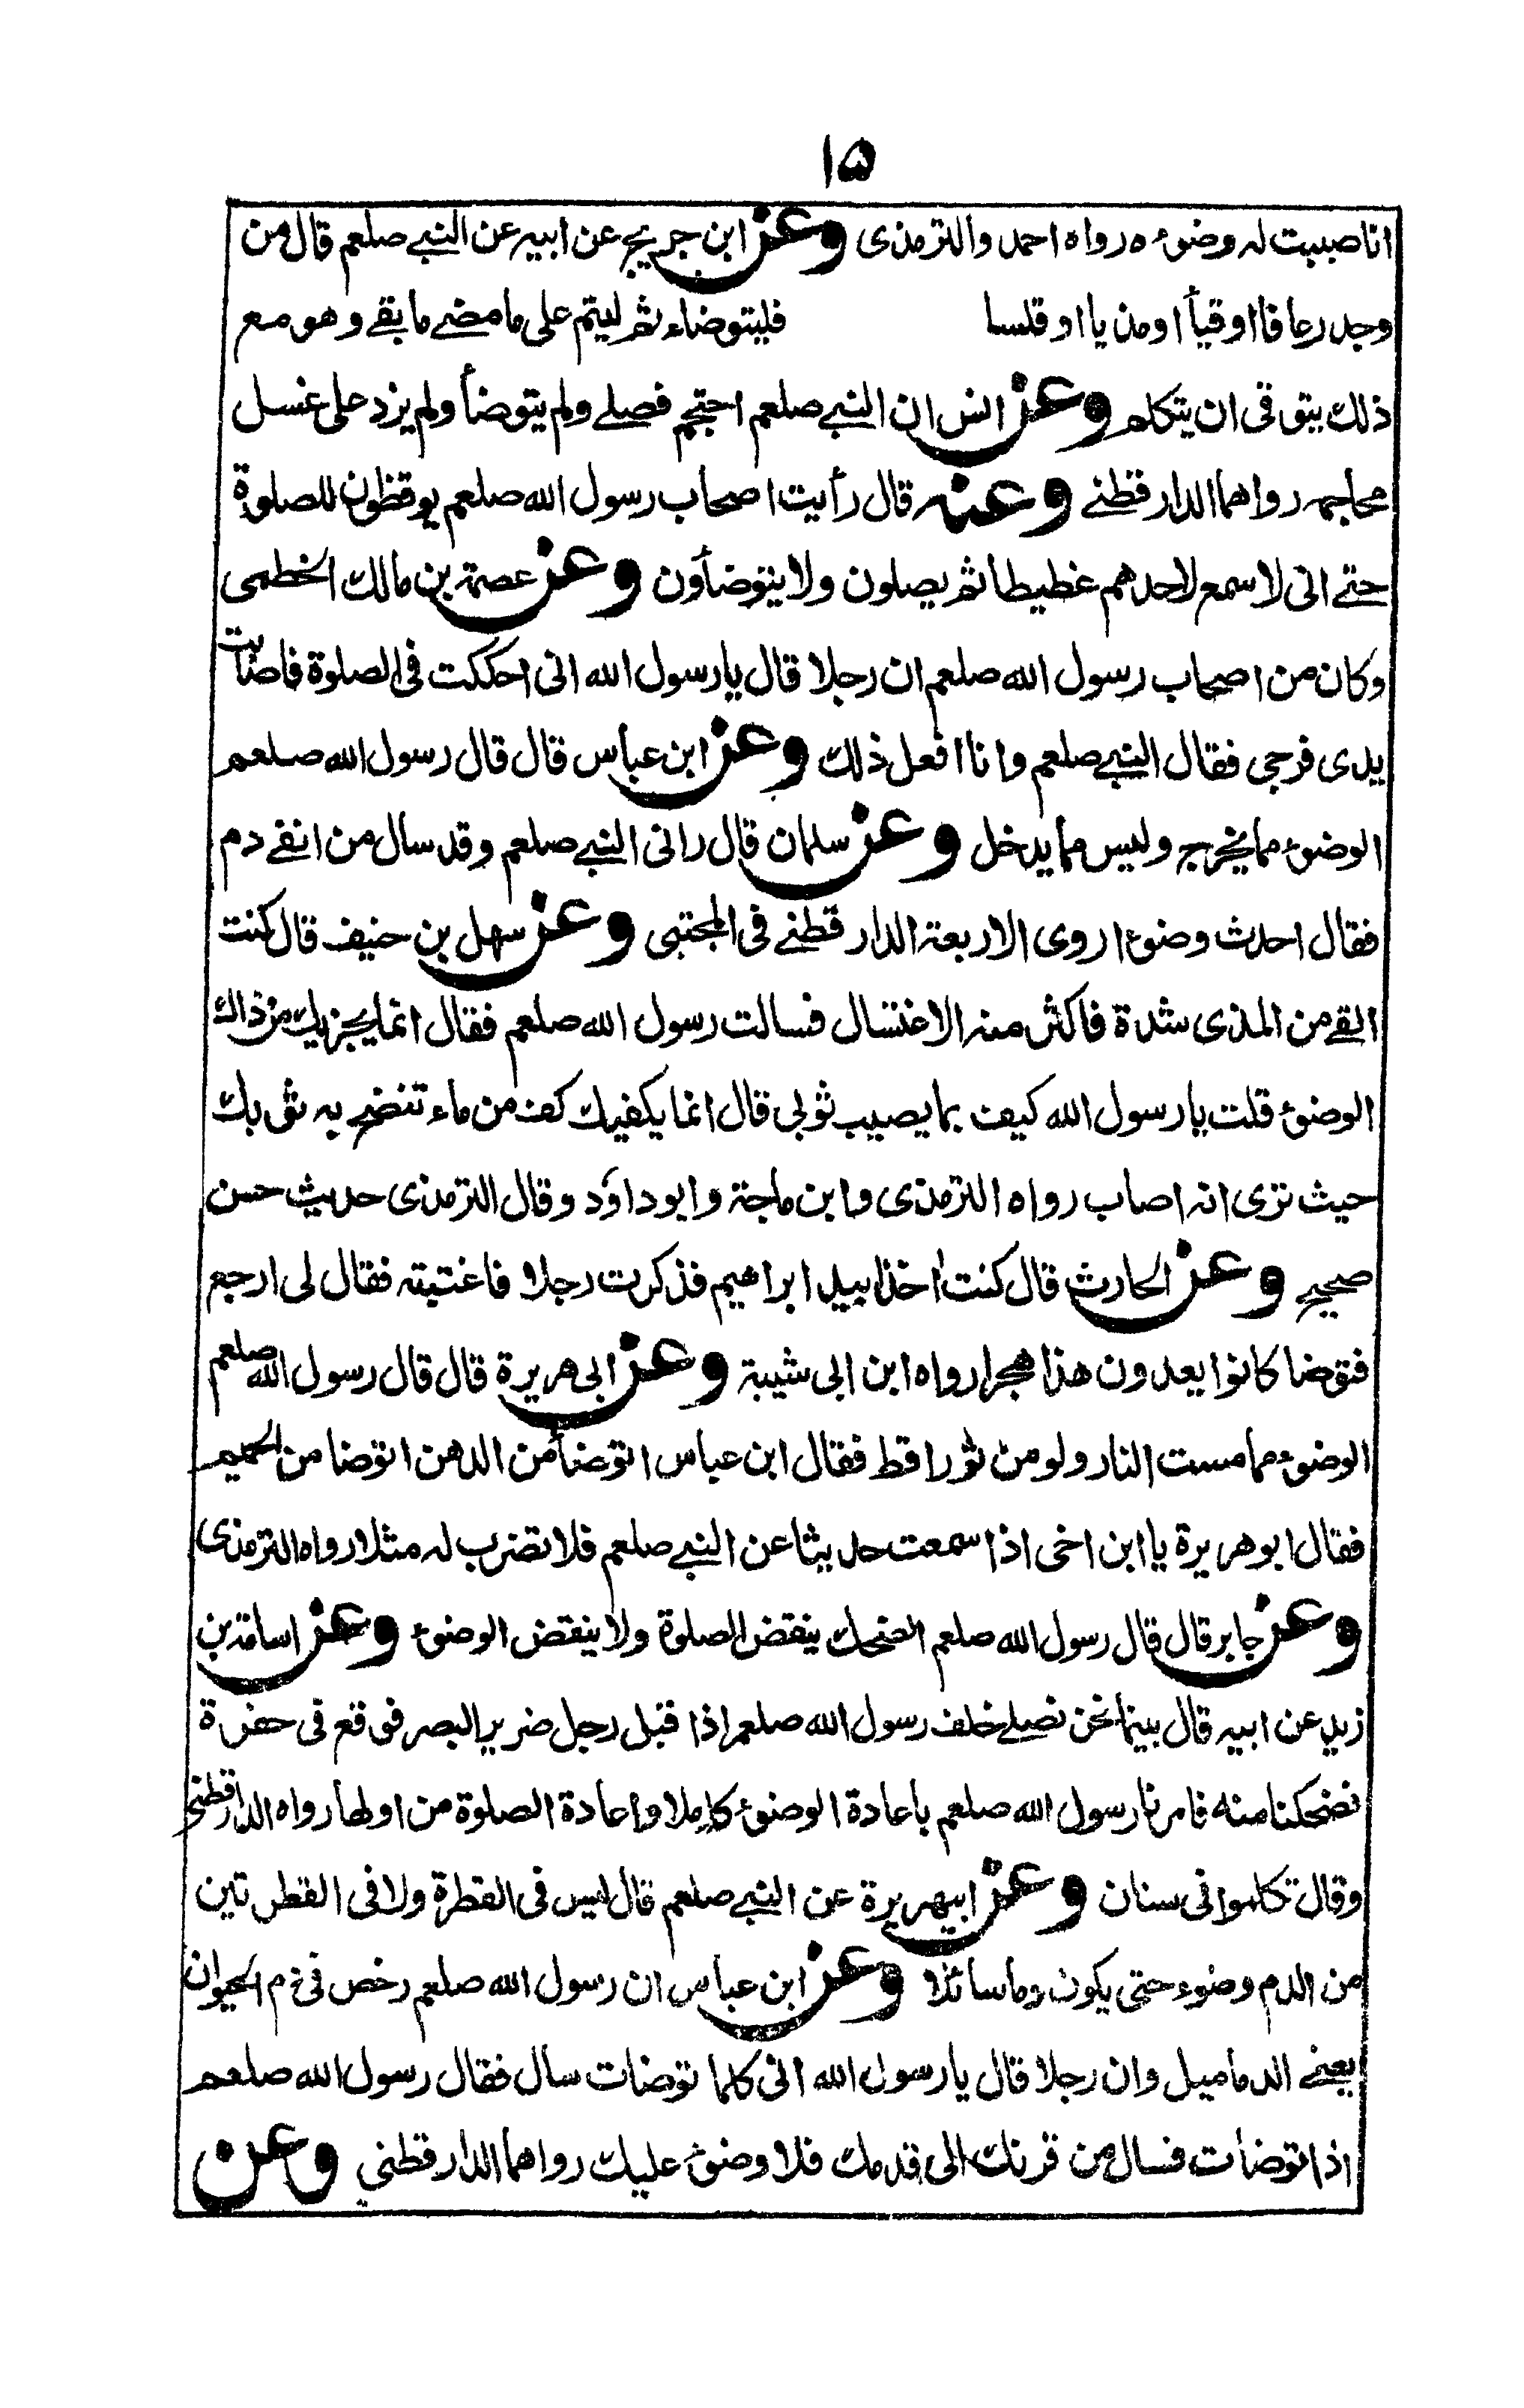 ۱۵
انا صببت له وضوءه رواه احمد والترمذى وعن ابن جريج عن ابيه عن النبى صلعم قال من
وجد رعافا او قيأ او مذيا او قلسا فليتوضاء ثم ليتم على ما مضى ما بقى و هو مع
ذلك يتوقى ان يتكلم وعن انس ان النبى صلعم احتجم فصلى ولم يتوضأ ولم يزد على غسل
محاجمه رواهما الدارقطنى وعنه قال رأيت اصحاب رسول الله صلعم يوقظون للصلوة
حتى انى لاسمع لاحدهم غطيطا ثم يصلون ولا يتوضأون وعن عصمة بن مالك الخطمى
وكان من اصحاب رسول الله صلعم ان رجلا قال يا رسول الله انى احككت فى الصلوة فاصابت
يدى فرجى فقال النبى صلعم وانا افعل ذلك وعن ابن عباس قال قال رسول الله صلعم
الوضوء مما يخرج وليس مما يدخل وعن سلمان قال رانى النبى صلعم وقد سال من انفى دم
فقال احدث وضوءا روى الاربعة الدارقطنى فى المجتبى وعن سهل بن حنيف قال كنت
القى من المذى شدة فاكثر منه الاغتسال فسالت رسول الله صلعم فقال انما يجزيك من ذالك
الوضوء قلت يا رسول الله كيف بما يصيب ثوبى قال انما يكفيك كف من ماء تنضح به ثوبك
حيث ترى انه اصاب رواه الترمذى وابن ماجة وابو داؤد وقال الترمذى حديث حسن
صحيح وعن الحارث قال كنت اخذا بيد ابراهيم فذكرت رجلا فاغتبته فقال لى ارجع
فتوضا كانوا يعدون هذا هجرا رواه ابن ابى شيبة وعن ابى هريرة قال قال رسول الله صلعم
الوضوء مما مست النار ولو من ثور اقط فقال ابن عباس اتوضأ من الدهن اتوضا من الحميم
فقال ابو هريرة يا ابن اخى اذا سمعت حديثا عن النبى صلعم فلا تضرب له مثلا رواه الترمذى
وعن جابر قال قال رسول الله صلعم الضحك ينقض الصلوة ولا ينقض الوضوء وعن اسامة بن
زيد عن ابيه قال بينما نحن نصلى خلف رسول الله صلعم اذا قبل رجل ضرير البصر فوقع فى حفرة
فضحكنا منه فامرنا رسول الله صلعم باعادة الوضوء كاملا واعادة الصلوة من اولها رواه الدارقطنى
وقال تكلموا فى سنان وعن ابيهريرة عن النبى صلعم قال ليس فى القطرة ولا فى القطرتين
من الدم وضوء حتى يكون دما سائلا وعن ابن عباس ان رسول الله صلعم رخص فى دم الحيوان
يعنى الدماميل وان رجلا قال يا رسول الله انى كلما توضات سال فقال رسول الله صلعم
اذا توضأت فسال من قرنك الى قدمك فلا وضوء عليك رواهما الدارقطنى وعن